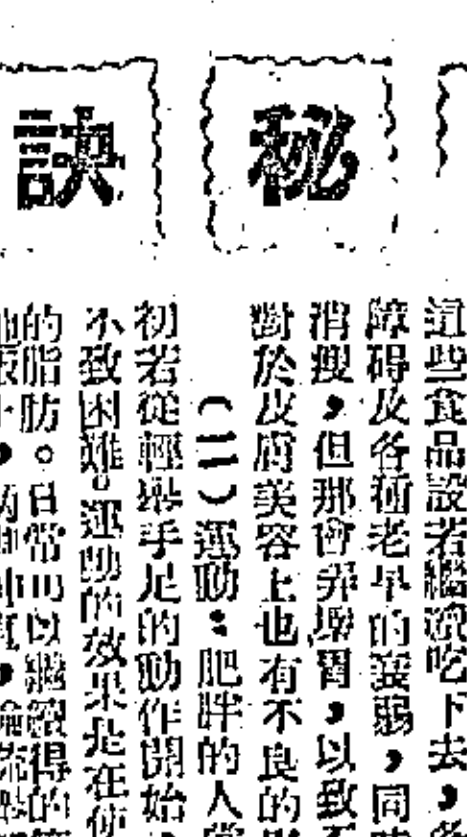 秘訣
這些食品設若繼續吃下去，
障碍及各種老早的衰弱，同
消瘦，但那會弄壞胃，以致
對於皮膚美容上也有不良的
（二）運動：肥胖的人
初若從輕舉手足的動作開始，
不致困難。運動的效果是在使
的脂肪。日常可以繼續得的